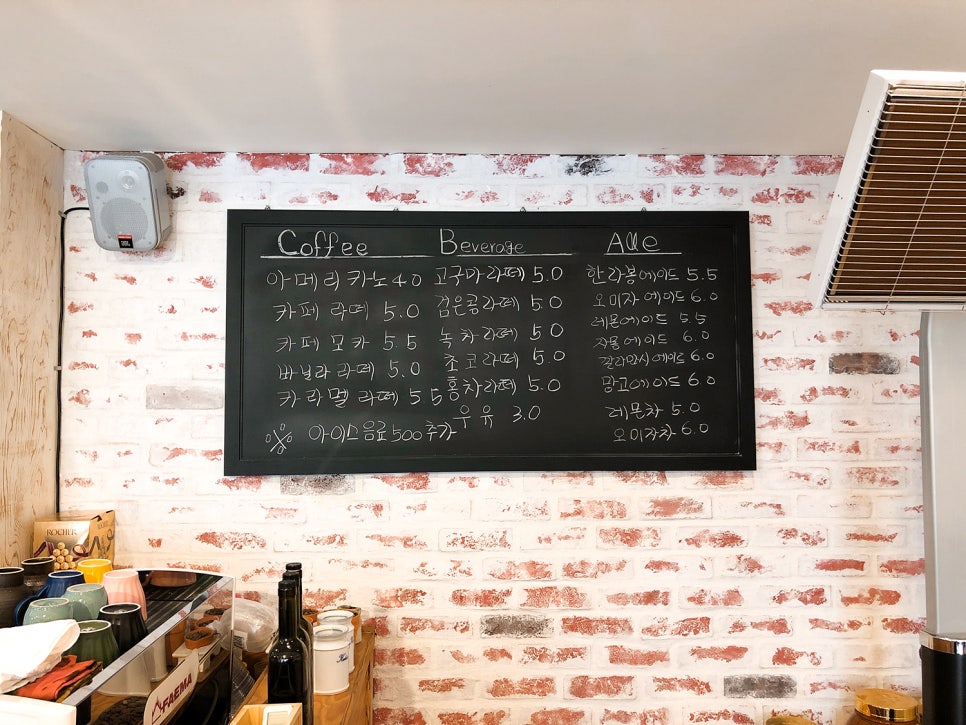 Coffee
아메리카노 4.0
카페 라떼 5.0
카페 모카 5.5
바닐라 라떼 5.0
카라멜 라떼 5.5
※ 아이스음료 500 추가
Beverage
고구마라떼 5.0
검은콩라떼 5.0
녹차라떼 5.0
초코라떼 5.0
홍차라떼 5.0
우유 3.0
Ade
한라봉에이드 5.5
오미자에이드 6.0
레몬에이드 5.5
자몽에이드 6.0
깔라만시에이드 6.0
망고에이드 6.0
레몬차 5.0
오미자차 6.0
JBL
ROCHER
FAEMA